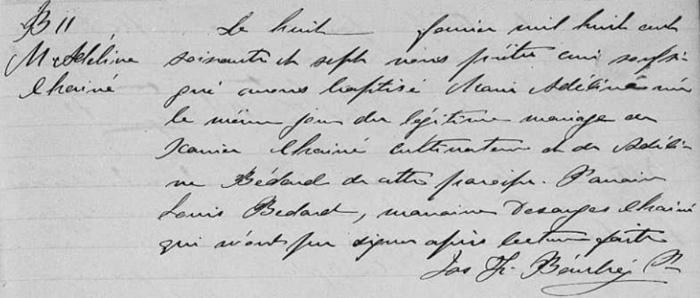 B 11
M Adéline
Chainé
Le huit Janvier mil huit cent
soixante et sept nous prêtre curé soussi-
gné avons baptisé Marie Adéline née
le même jour du légitime mariage de
Xavier Chainé cultivateur et de Adéli-
ne Bédard de cette paroisse. Parrain
Louis Bedard, marraine Desanges Chainé
qui n'ont pu signer après lecture faite
Jos Th. Ptre